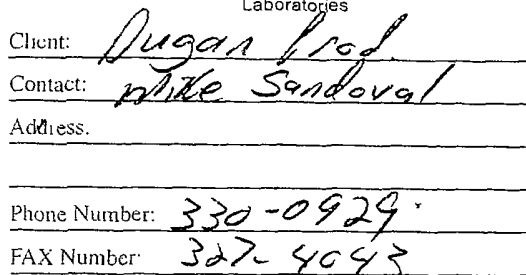 Laboratories
Client: Dugan Prod.
Contact: Mike Sandoval
Address.
Phone Number: 330-0929
FAX Number: 327-4043